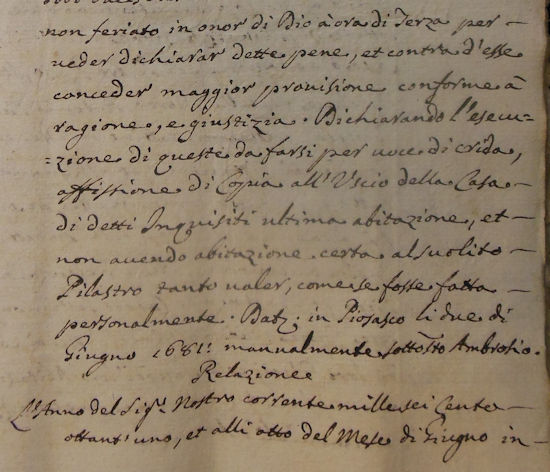 non feriato in onor di Dio à ora di Terza per –
veder dichiarar dette pene, et contra d'esse
conceder maggior provisione conforme à
ragione, e giustizia. Dichiarando l'esecu-
-zione di queste da farsi per voce di crida,
affissione di Copia all'Uscio della Casa –
di detti Inquisiti ultima abitazione, et –
non avendo abitazione certa al suolito –
Pilastro tanto valer, come se fosse fatta –
personalmente. Dat: in Piosasco li due di
Giugno 1681: manualmente sottosto Ambrosio.
Relazione
L'Anno del Sigr Nostro corrente mille sei Cento –
ottant'uno, et alli otto del Mese di Giugno in –